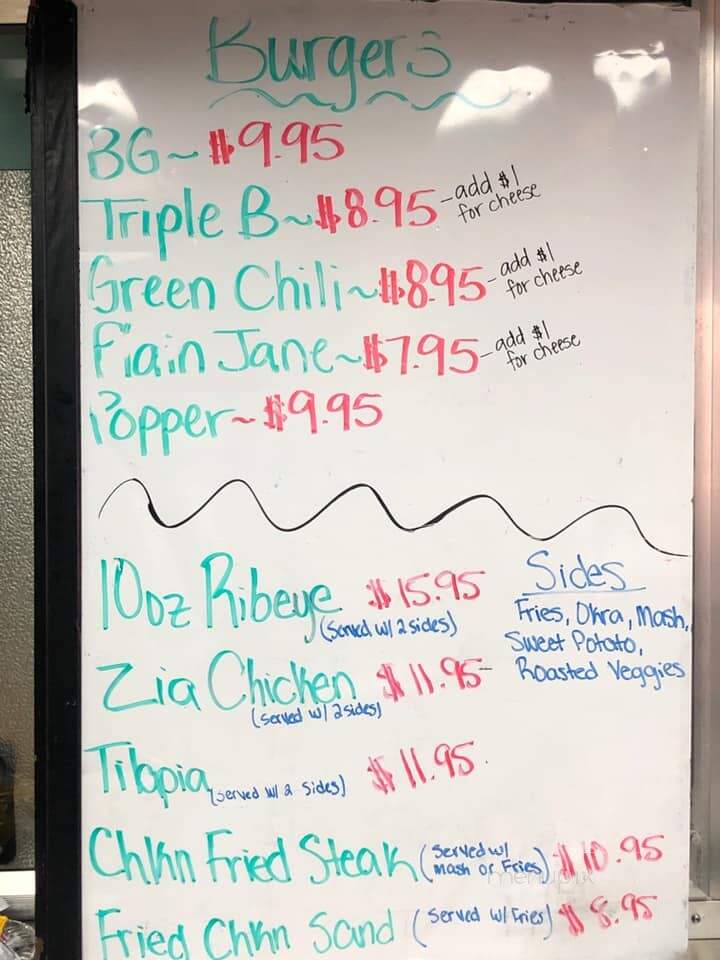 Burgers
BG ~ $9.95
Triple B ~ $8.95 - add $1 for cheese
Green Chili ~ $8.95 - add $1 for cheese
Plain Jane ~ $7.95 - add $1 for cheese
Popper ~ $9.95
10oz Ribeye $15.95
(Served w/ 2 sides)
Zia Chicken $11.95
(served w/ 2 sides)
Tilapia (served w/ 2 sides) $11.95
Chkn Fried Steak (served w/ mash or Fries) $10.95
Fried Chkn Sand (served w/ Fries) $8.95
Sides
Fries, Okra, Mash,
Sweet Potato,
Roasted Veggies
menupix